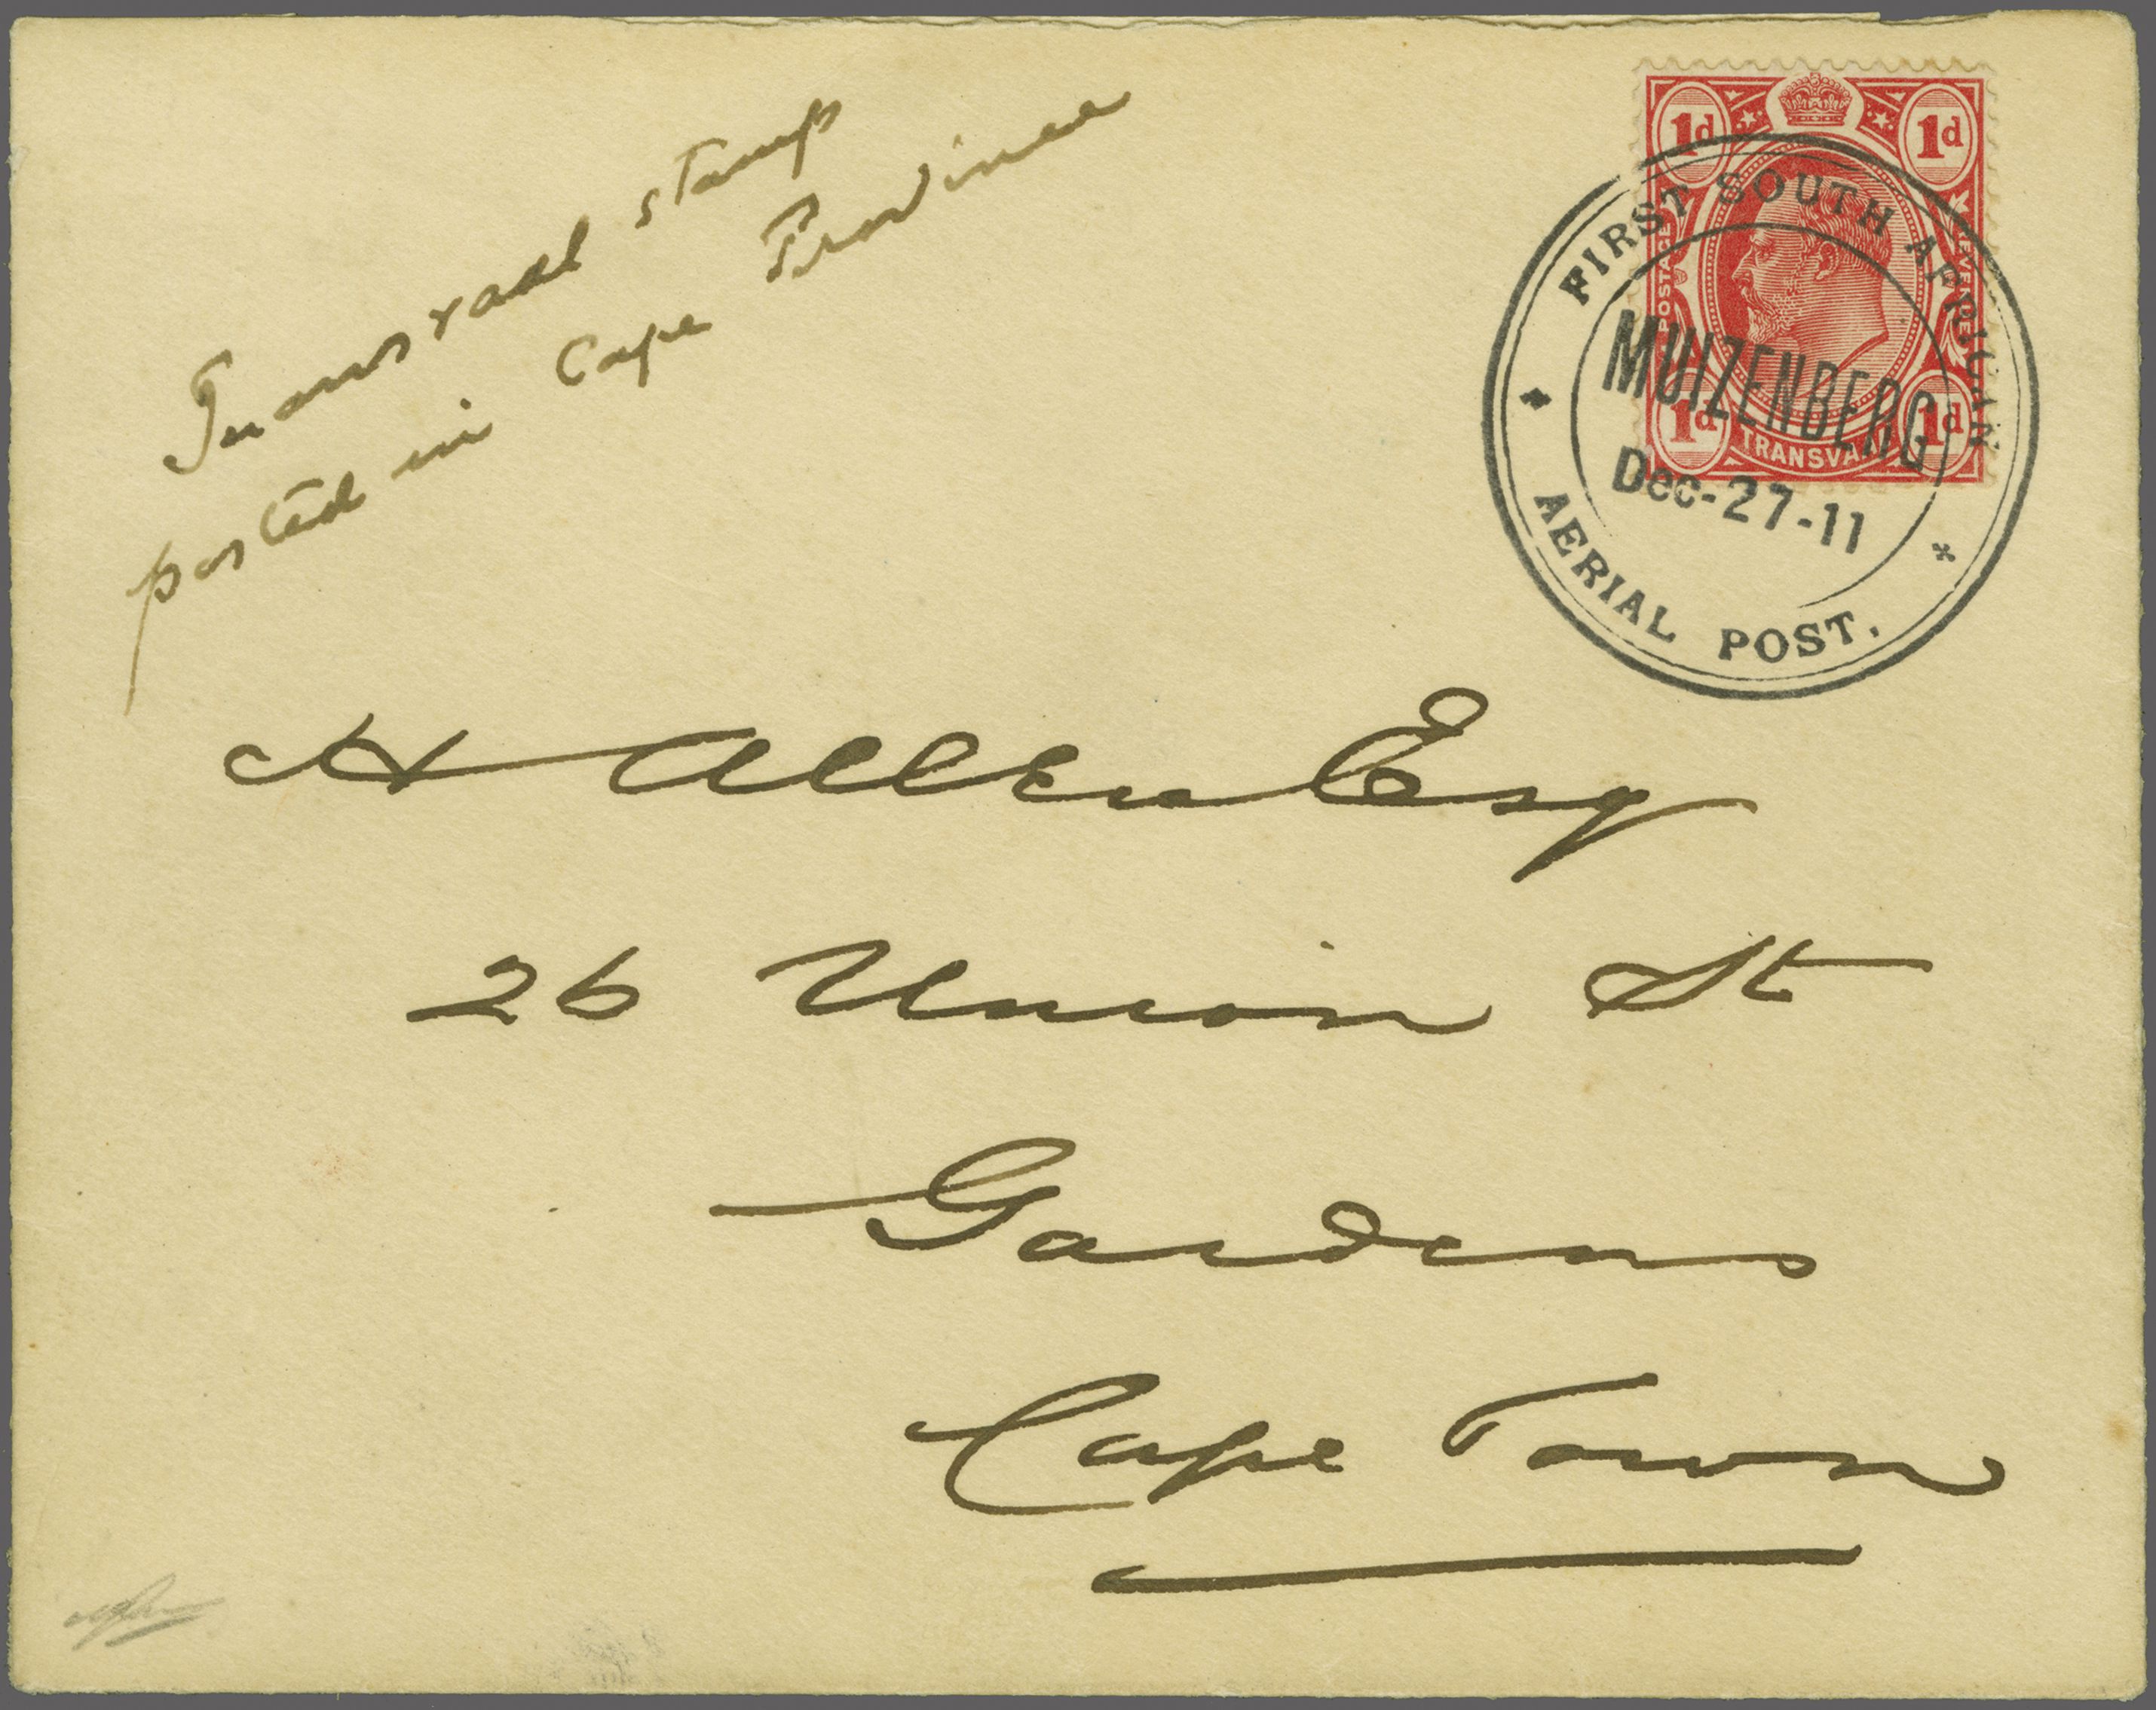 Transvaal stamp
posted in Cape Province
1d 1d
POSTAGE REVENUE
1d 1d
TRANSVAAL
FIRST SOUTH AFRICAN
MUIZENBERG
Dec-27-11
AERIAL POST.
H Allen Esq
26 Union St
Gardens
Cape Town